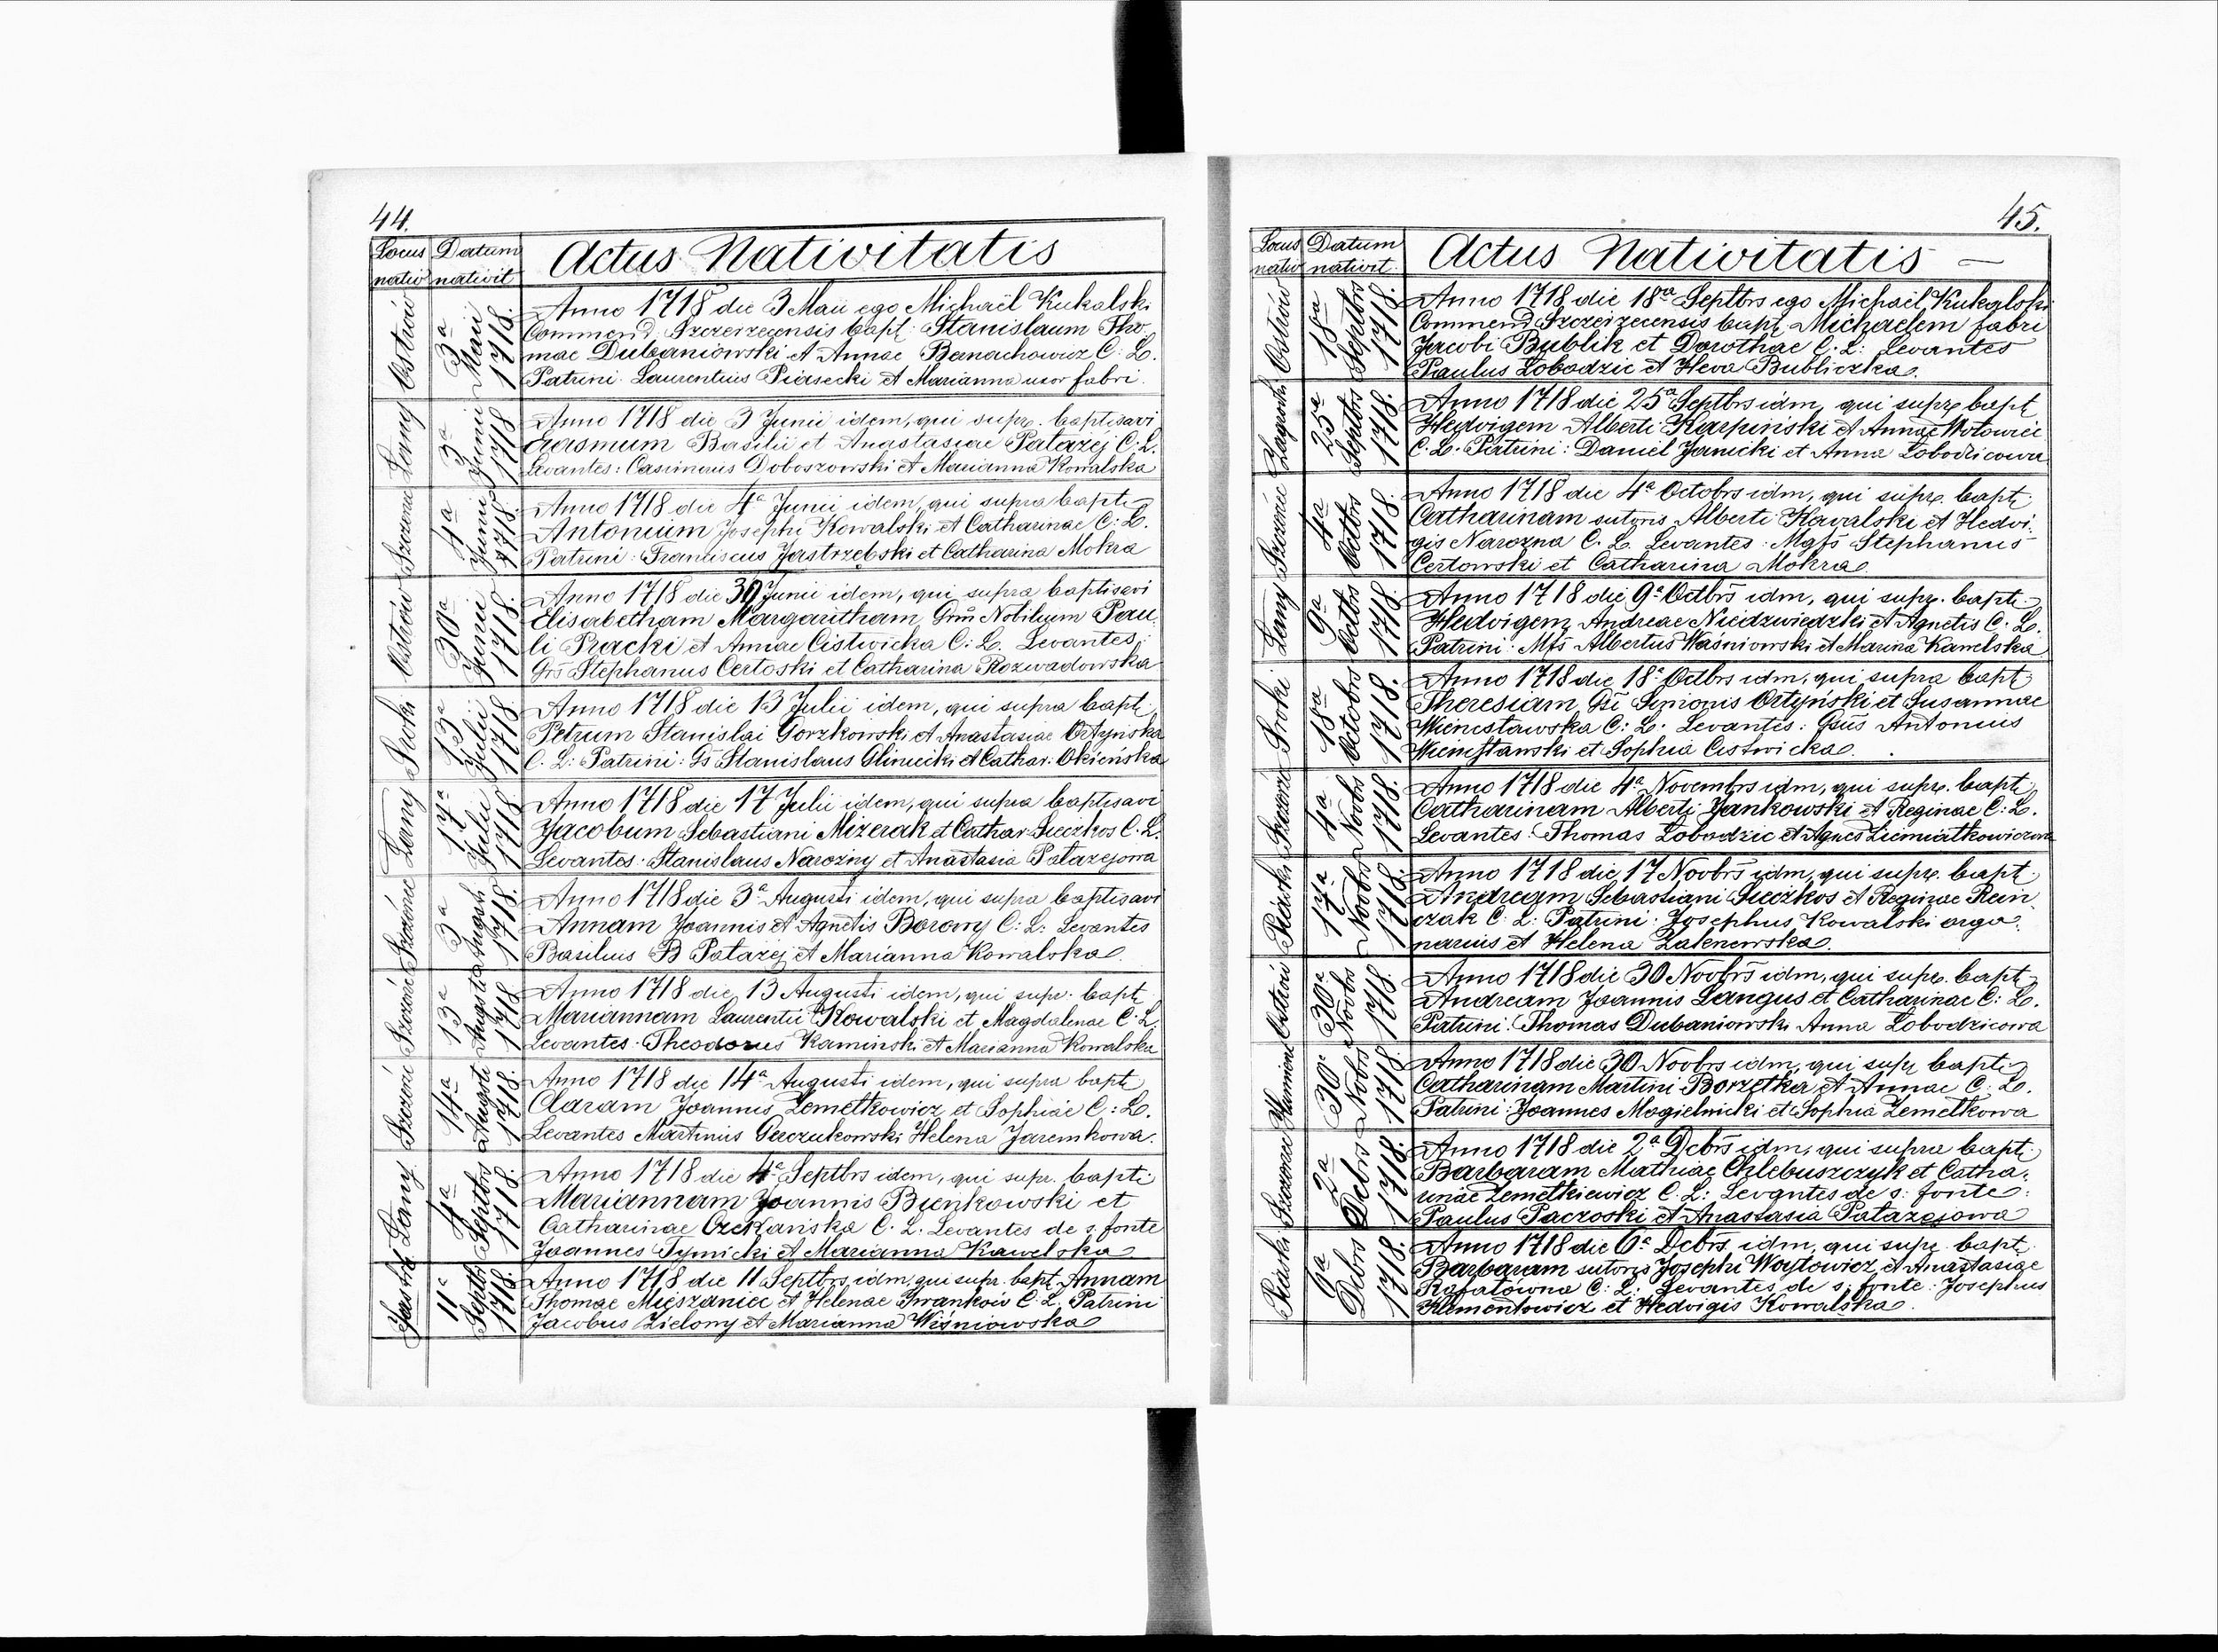 44.
Locus nativ
Datum nativit
Actus Nativitatis
Ostrów
3a Maii 1718.
Anno 1718 die 3 Maii ego Michaël Kukalski
Commend. Szczerzecensis bapt: Stanislaum Tho
mae Dubaniowski et Annae Banachowicz C: L.
Patrini: Laurentius Piasecki et Marianna uxor fabri.
Łany
3a Junii 1718
Anno 1718 die 3 Junii idem, qui supr. baptisavi
Erasmum Basilii et Anastasiae Patazėj C. L.
Levantes: Casimirus Doboszowski et Marianna Kowalska
4a Junii 1718.
Anno 1718 die 4a Junii idem, qui supra bapti
Antonium Josephi Kowalski et Catharinae C: L.
Patrini: Franciscus Jastrzębski et Catharina Mokra
Ostrów
30a Junii 1718.
Anno 1718 die 30 Junii idem, qui supra baptisavi
Elisabetham Margaritham Grm Nobilium Pau
li Pracki et Annae Cistwicka C: L. Levantes,
Grs Stephanus Certoski et Catharina Rozwadowska
13a Julii 1718.
Anno 1718 die 13 Julii idem, qui supra bapti
Petrum Stanislai Gorzkowski et Anastasiae Ortyńska
C. L: Patrini: Gs Stanislaus Gliniecki et Cathar: Okieńska
Łany
17a Julii 1718.
Anno 1718 die 17 Julii idem, qui supra baptisavi
Jacobum Sebastiani Mizerak et Cathar Sieczkos C. L.
Levantes: Stanislaus Narożny et Anastasia Patazejowa
3a Augusti 1718.
Anno 1718 die 3a Augusti idem, qui supra baptisavi
Annam Joannis et Agnetis Borowy C: L: Levantes
Basilius B Patazėj et Marianna Kowalska.
13a Augusti 1718
Anno 1718 die 13 Augusti idem, qui supr. bapti
Mariannam Laurentii Kowalski et Magdalenae C. L.
Levantes: Theodorus Kaminski et Marianna Kowalska
14a Augusti 1718.
Anno 1718 die 14a Augusti idem, qui supra bapti
Claram Joannis Zemełkowicz et Sophiae C: L.
Levantes Martinus Gerczukowski Helena Jaremkowa.
Łany
4a Septbrs 1718.
Anno 1718 die 4a Septbrs idem, qui supr. bapti
Mariannam Joannis Bieńkowski et
Catharinae Czekańska C. L. Levantes de s. fonte
Joannes Tymicki et Marianna Kawelska
11a Septbr 1718.
Anno 1718 die 11 Septbrs idm, qui supr. bapt. Annam
Thomae Mięszaniec et Helenae Iwankow C: L. Patrini
Jacobus Zielony et Marianna Wiśniowska
45.
Locus nativ
Datum nativit.
Actus Nativitatis —
Ostrów
18va Septbrs 1718.
Anno 1718 die 18va Septbrs ego Michaël Kukolski
Commend Szczerzecensis bapt Michaelem fabri
Jacobi Bublik et Dorothae C. L: Levantes
Paulus Łobodzic et Heva Bubliczka.
25a Septbrs 1718.
Anno 1718 die 25a Septbrs idm, qui supr bapt
Hedvigem Alberti Karpiński et Annae Wotowiec
C. L. Patrini: Daniel Janicki et Anna Łobodzicowa
4a Octobrs 1718.
Anno 1718 die 4a Octobrs idm, qui supr. bapt:
Catharinam sutoris Alberti Kowalski et Hedvi:
gis Narozna C. L. Levantes: Mgfs Stephanus
Certowski et Catharina Mokra.
Łany
9a Octbrs 1718.
Anno 1718 die 9a Octbrs idm, qui supr. bapti
Hedvigem Andreae Niedzwiedzki et Agnetis C. L.
Patrini: Mfs Albertus Waśniowski et Marina Kawelska
18va Octobrs 1718.
Anno 1718 die 18a Octbrs idm, qui supra bapt:
Theresiam Gsi Simonis Ortyński et Susannae
Wienistawska C: L: Levantes: Gsus Antonius
Wienistawski et Sophia Cistwicka.
4a Novbs 1718.
Anno 1718 die 4a Novembrs idm, qui supr. bapti
Catharinam Alberti Jankowski et Reginae C: L.
Levantes: Thomas Łobodzic et Agnes Ziemiałkowiczowa
Piaski
17a Novbrs 1718.
Anno 1718 die 17 Novbrs idm, qui supr. bapt.
Andream Sebastiani Sieczkos et Reginae Rein
czak C. L: Patrini: Josephus Kowalski orga
narius et Helena Zalenewska.
Ostrów
30a Novbs 1718.
Anno 1718 die 30 Novbrs idm, qui supr. bapt.
Andream Joannis Langus et Catharinae C: L.
Patrini: Thomas Dubaniowski Anna Łobodzicowa
30a Novbs 1718.
Anno 1718 die 30 Novbrs idm, qui supr bapti
Catharinam Martini Borzetka et Annae C: L.
Patrini: Joannes Mogielnicki et Sophia Zemełkowa
2a Debrs 1718.
Anno 1718 die 2a Dcbrs idm, qui supra bapti
Barbaram Mathiae Chlebuszczyk et Catha:
rinae Zemełkiewicz C. L: Levantes de s: fonte:
Paulus Paczoski et Anastasia Patazejowa
Piaski
6a Debrs 1718.
Anno 1718 die 6a Dcbrs idm, qui supr. bapt.
Barbaram sutoris Josephi Woytowicz et Anastasiae
Rafałówna C: L: Levantes de s: fonte: Josephus
Klementowicz et Hedvigis Kowalska.